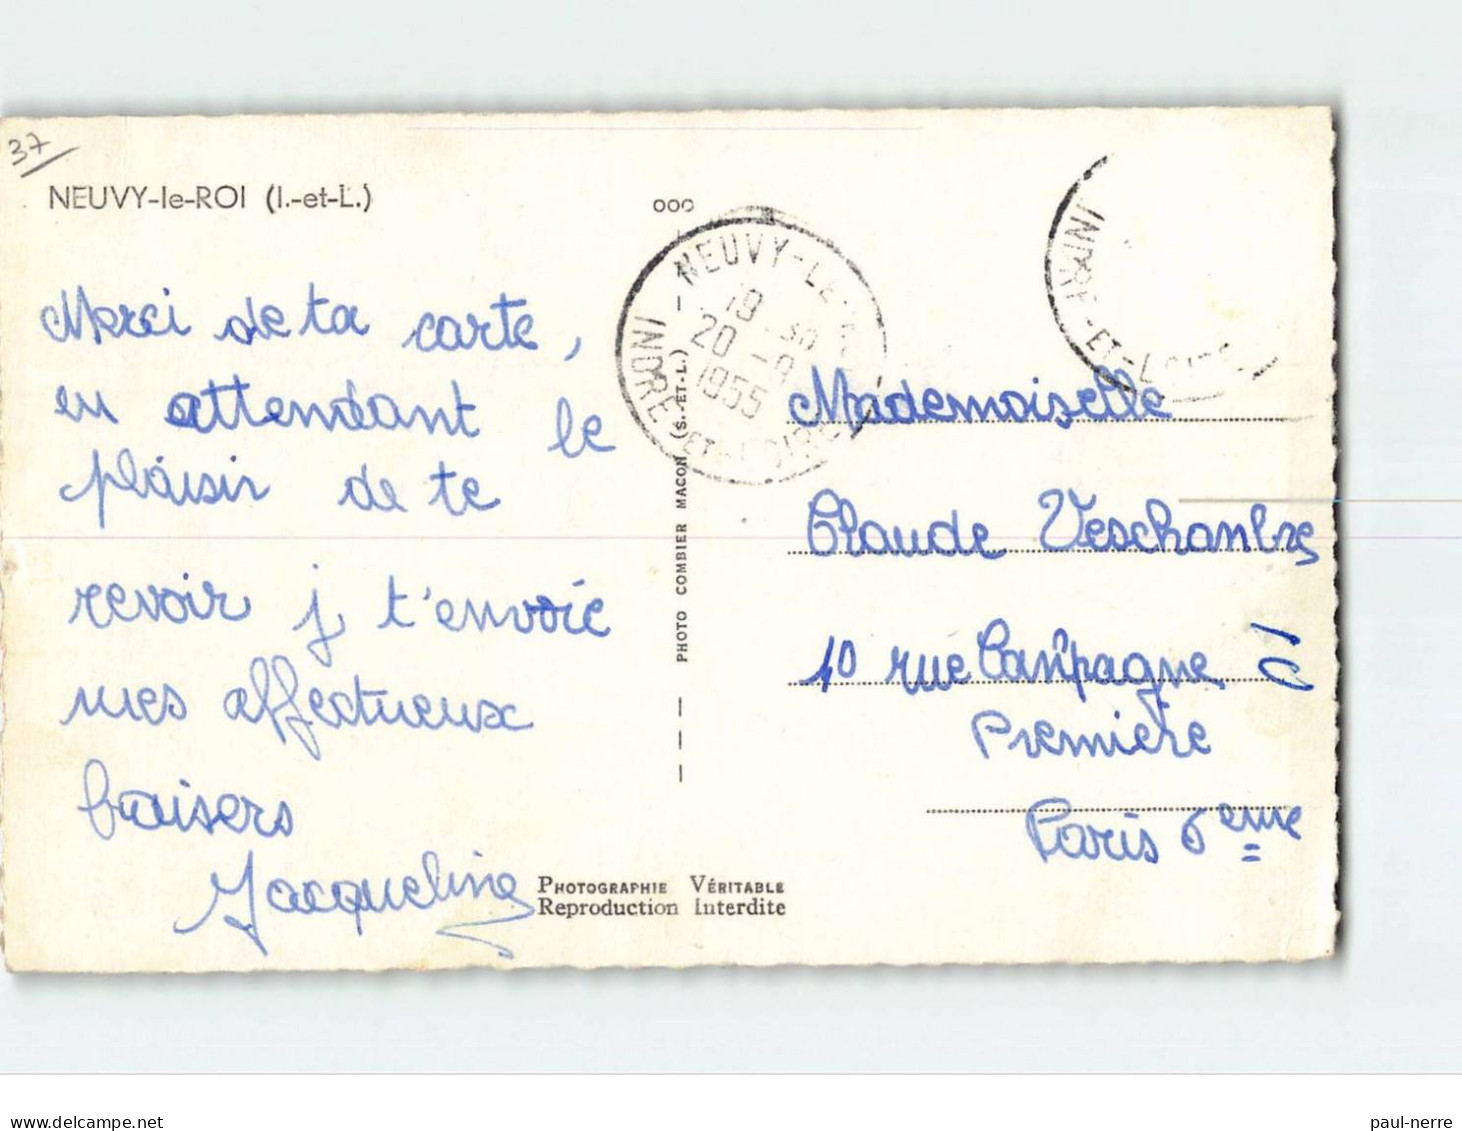 37
NEUVY-le-ROI (I.-et-L.)
Merci de ta carte,
en attendant le
plaisir de te
revoir j t'envoie
mes affectueux
baisers
Jacqueline
NEUVY-LE-
19 30
20 -8
1955
INDRE-ET-LOIRE
PHOTO COMBIER MACON (S.-ET-L.)
INDRE-ET-LOIRE
Mademoiselle
Claude Veschambre
10 rue Campagne 10
Première
Paris 6eme
PHOTOGRAPHIE VÉRITABLE
Reproduction Interdite
paul-nerre